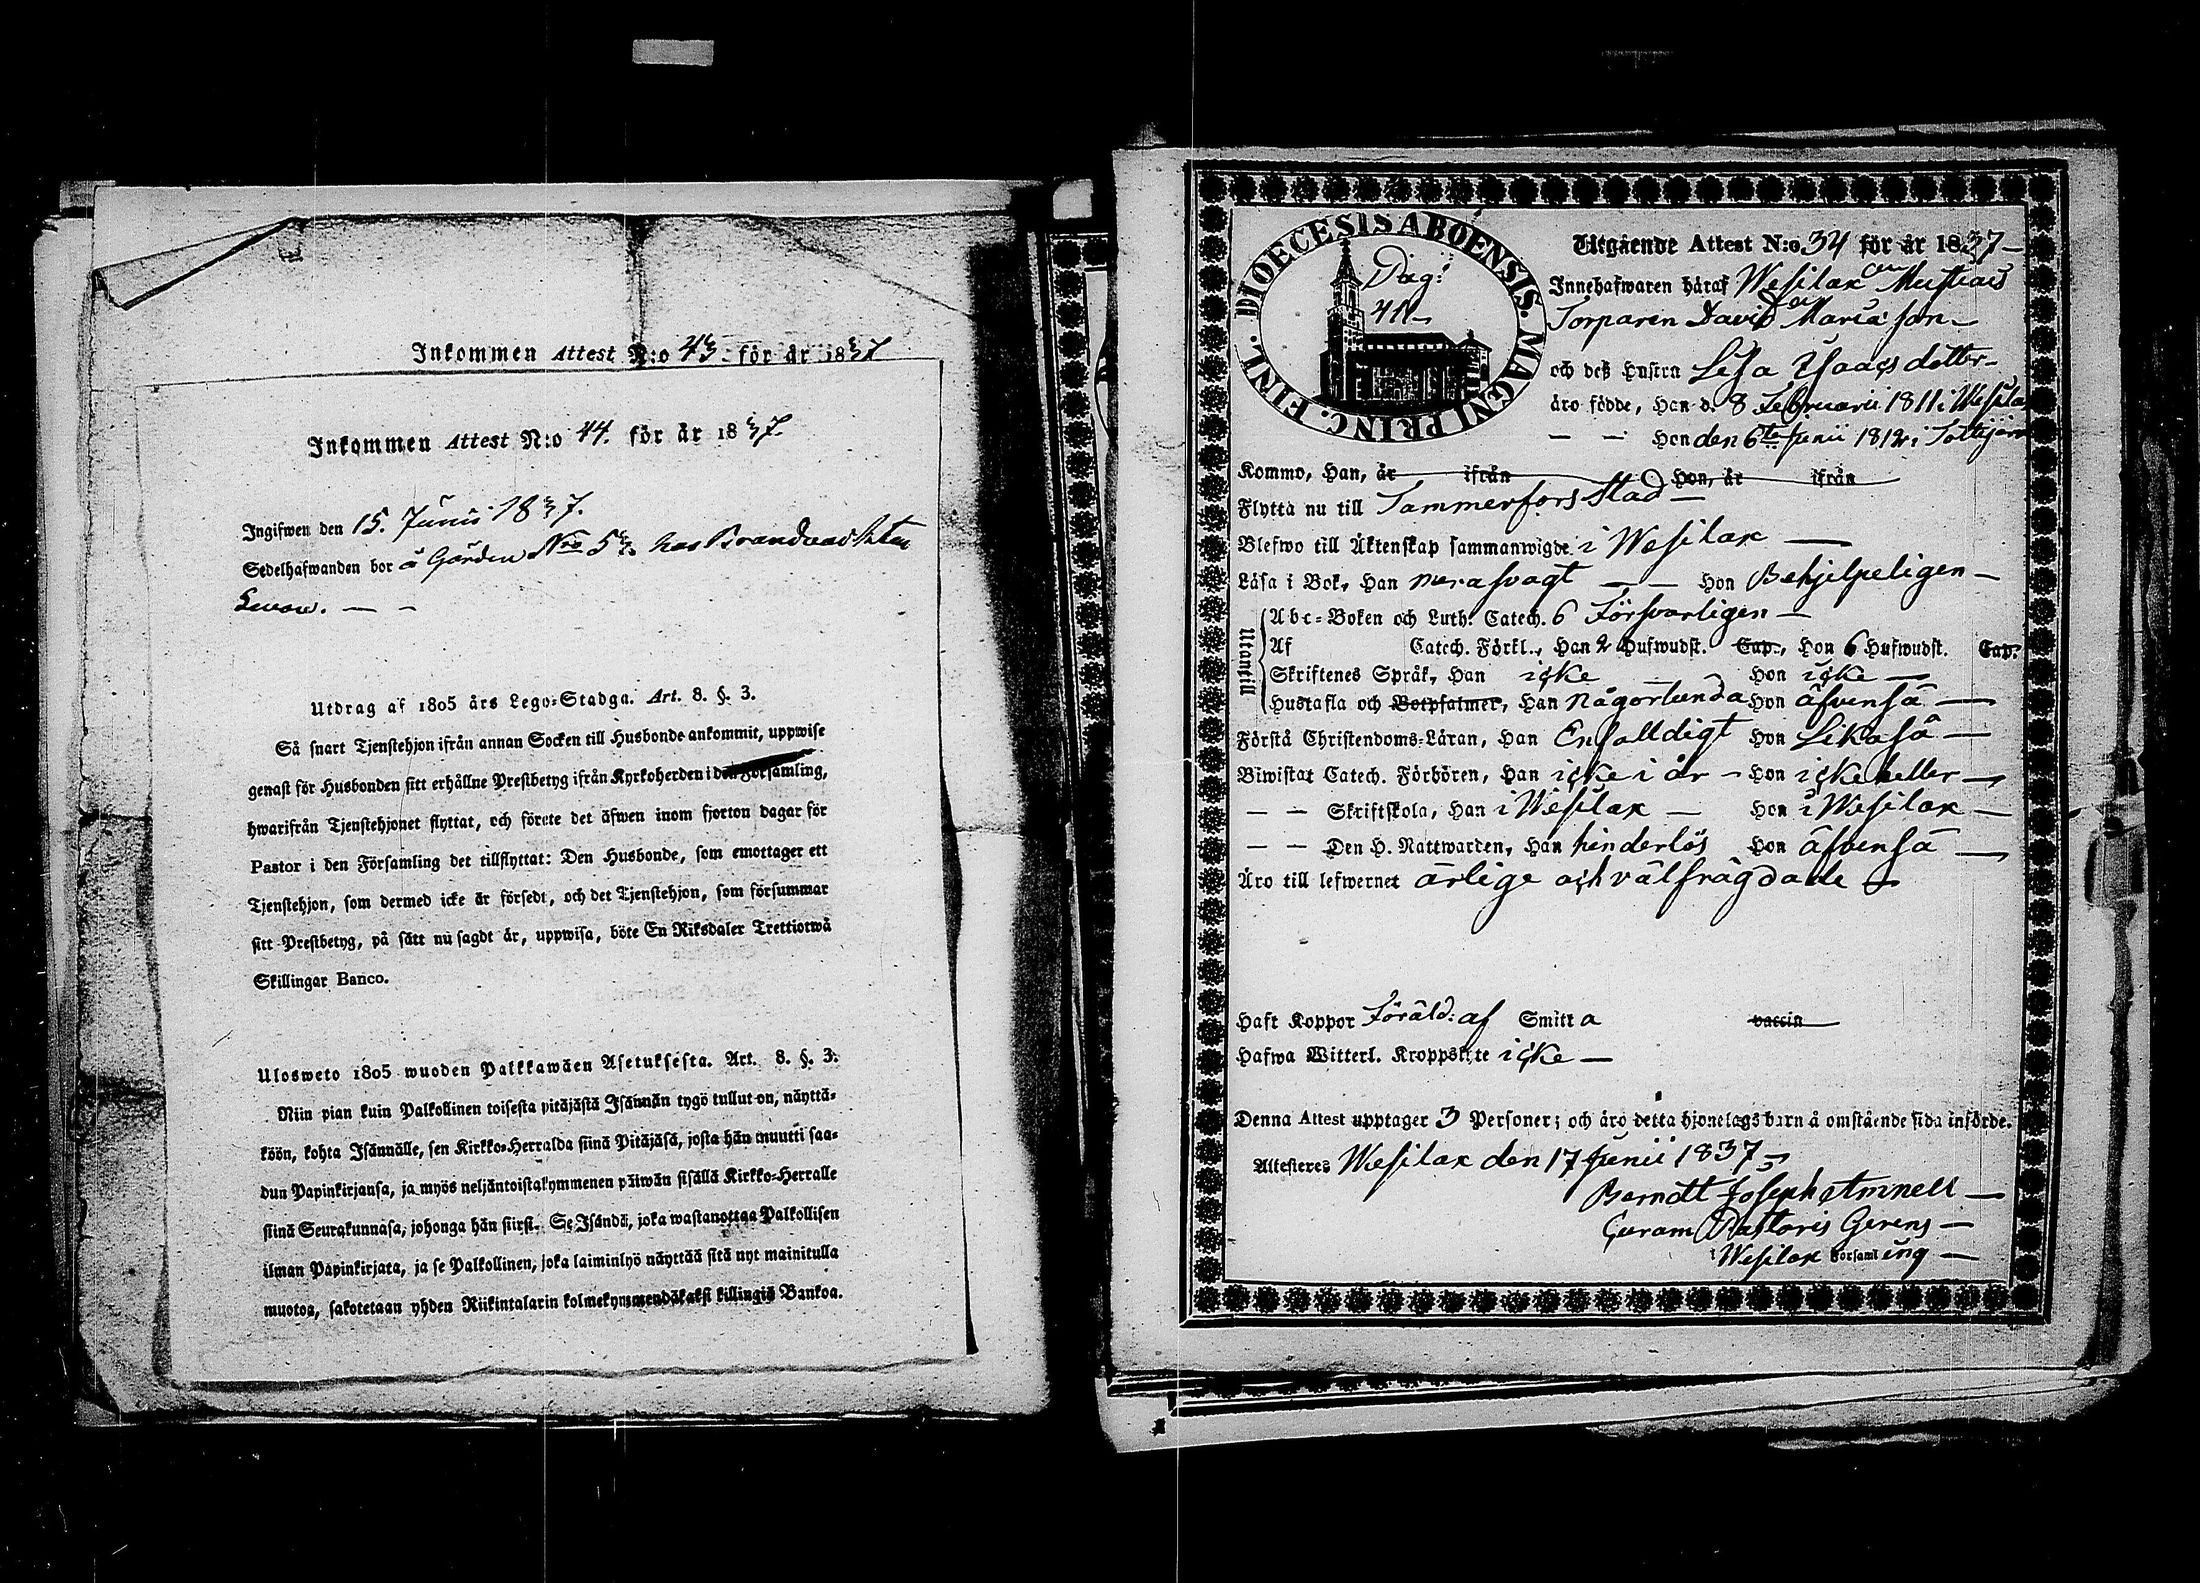 Inkommen Attest N:o 43. för år 1837
Inkommen Attest N:o 44. för år 1837.
Ingifwen den 15. Junii 1837.
Sedelhafwanden bor å Gården Nro 52. hos Brandvackten
Utdrag af 1805 års Lego-Stadga. Art. 8. §. 3.
Så snart Tjenstehjon ifrån annan Socken till Husbonde ankommit, uppwise
genast för Husbonden sitt erhållne Prestbetyg ifrån Kyrkoherden i den Församling,
hwarifrån Tjenstehjonet flyttat, och förete det äfwen inom fjorton dagar för
Pastor i den Församling det tillflyttat: Den Husbonde, som emottager ett
Tjenstehjon, som dermed icke är försedt, och det Tjenstehjon, som försummar
sitt Prestbetyg, på sätt nu sagdt är, uppwisa, böte En Riksdaler Trettiotwå
Skillingar Banco.
Ulosweto 1805 wuoden Palkkawäen Asetuksesta. Art. 8. §. 3.
Niin pian kuin Palkollinen toisesta pitäjästä Isännän tygö tullut on, näyttä-
köön, kohta Isännälle, sen Kirkko-Herralda siinä Pitäjäsä, josta hän muutti saa-
dun Papinkirjansa, ja myös neljäntoistakymmenen päiwän sisällä Kirkko-Herralle
siinä Seurakunnasa, johonga hän siirst. Se Isändä, joka wastanottaa Palkollisen
ilman Papinkirjata, ja se Palkollinen, joka laiminlyö näyttää sitä nyt mainitulla
muotoa, sakotetaan yhden Riikintalarin kolmekymmendäkaksi killingiä Bankoa.
DIOECESIS ABOENSIS. MAGNI PRINC. FINL.
Pag:
411
Utgående Attest N:o 34 för år 1837
Innehafwaren häraf Wesilax Mustiais
Torparen David Maria son
och deß Hustru Lisa Isaacs dotter
äro födde, Han d. 8 Februarii 1811 i Wesilax
— — Hon den 6te Junii 1812 i
Kommo, Han, år ifrån Hon, år ifrån
Flytta nu till Tammerfors Stad
Blefwo till Äktenskap sammanwigde i Wesilax
Läsa i Bok, Han svagt — — Hon Behjelpeligen
Utantill
Abc-Boken och Luth: Catech. 6 Försvarligen
Af Catech. Förkl., Han 2 Hufwudst. Cap., Hon 6 Hufwudst. Cap.
Skriftenes Språk, Han icke Hon icke
Hustafla och Botpsalmer, Han någorlunda Hon äfvenså
Förstå Christendoms-Läran, Han Enfalldigt Hon Likaså
Biwistat Catech. Förhören, Han icke i år — Hon icke heller
— — Skriftskola, Han i Wesilax — Hon i Wesilax
— — Den H. Nattwarden, Han hinderlös Hon äfvenså
Äro till lefwernet ärlige och välfrägdade
Haft Koppor Föräld: af Smitta vaccin
Hafwa Witterl. Kroppslyte icke
Denna Attest upptager 3 Personer; och äro detta hjonelags barn å omstående sida införde.
Attesteres Wesilax den 17 Junii 1837
Berndt Joseph Amnell
Curam Pastoris Gerens
i Wesilax Församling